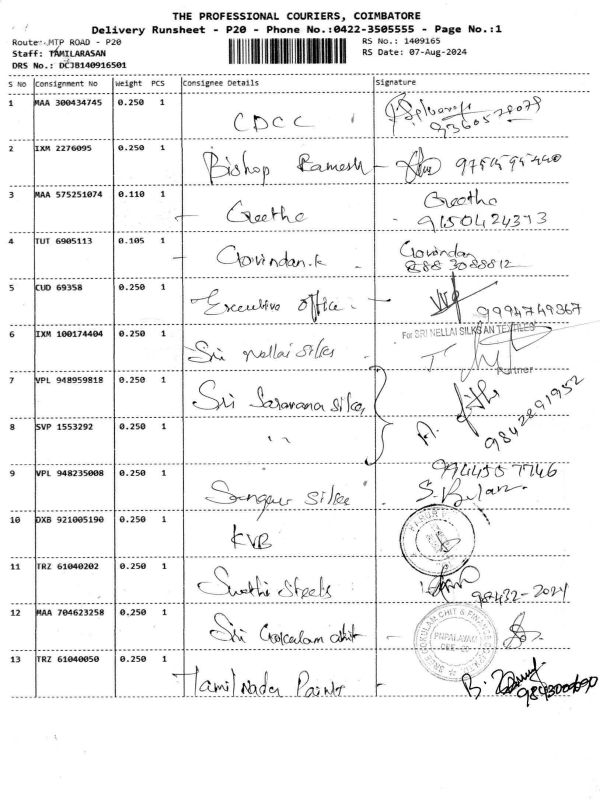 THE PROFESSIONAL COURIERS, COIMBATORE
Delivery Runsheet - P20 - Phone No.:0422-3505555 - Page No.:1
Route:MTP ROAD - P20
Staff: TAMILARASAN
DRS No.: DCJB140916501
RS No.: 1409165
RS Date: 07-Aug-2024
S No Consignment No Weight PCS Consignee Details Signature
1 MAA 300434745 0.250 1 CDCC
2 IXM 2276095 0.250 1 Bishop Ramesh
3 MAA 575251074 0.110 1 Geetha Geetha
9150424373
4 TUT 6905113 0.105 1 Govindan.k Govindan
883 3088812
5 CUD 69358 0.250 1 Executive office 9994749367
6 IXM 100174404 0.250 1 Sri nellai silks For SRI NELLAI SILKS AN TEXTILES
Partner
7 VPL 948959818 0.250 1 Sri Saravana silks
9842891952
8 SVP 1553292 0.250 1 "
9 VPL 948235008 0.250 1 silks 9944557746
10 DXB 921005190 0.250 1 KVB
11 TRZ 61040202 0.250 1 Swathi Steels
12 MAA 704623258 0.250 1 Sri Gokulam chit SREE GOKULAM CHIT & FINANCE
13 TRZ 61040050 0.250 1 Tamil Nadu Paints